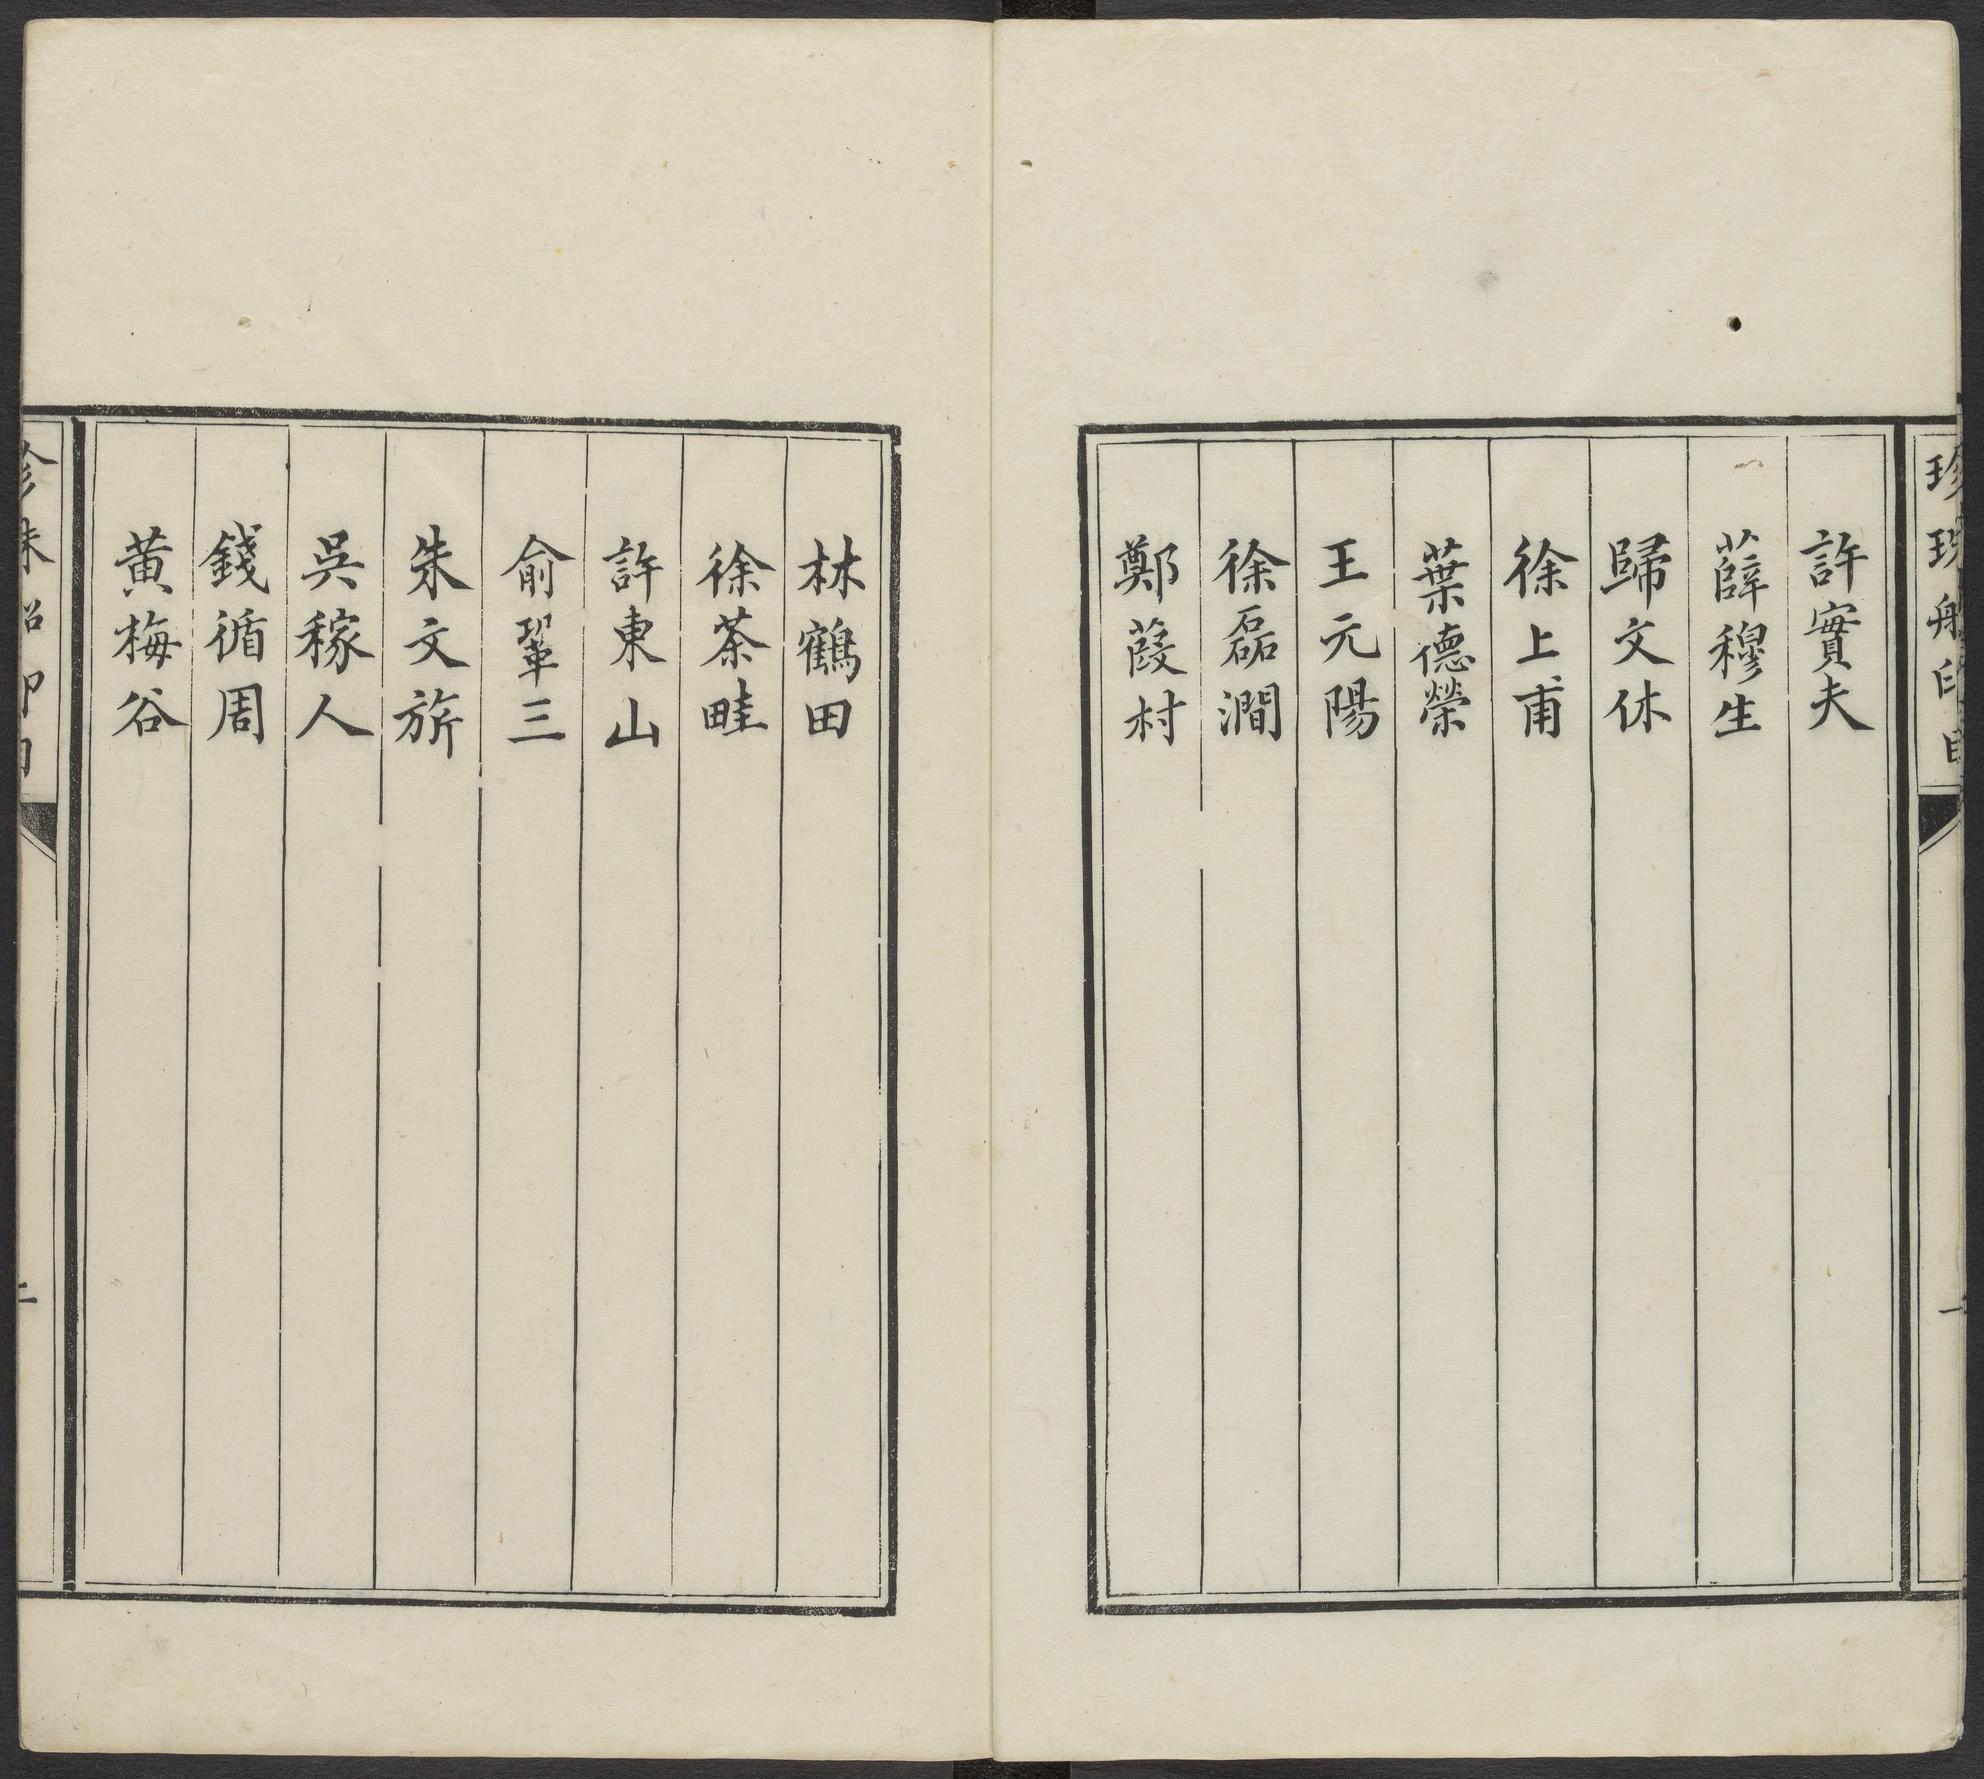 珍珠船印目
一
許實夫
薛穆生
歸文休
徐上甫
葉德榮
王元陽
徐磊澗
鄭葭村
林鶴田
徐荼畦
許東山
俞鞏三
朱文旂
吳稼人
錢循周
黃梅谷
珍珠船印目
二